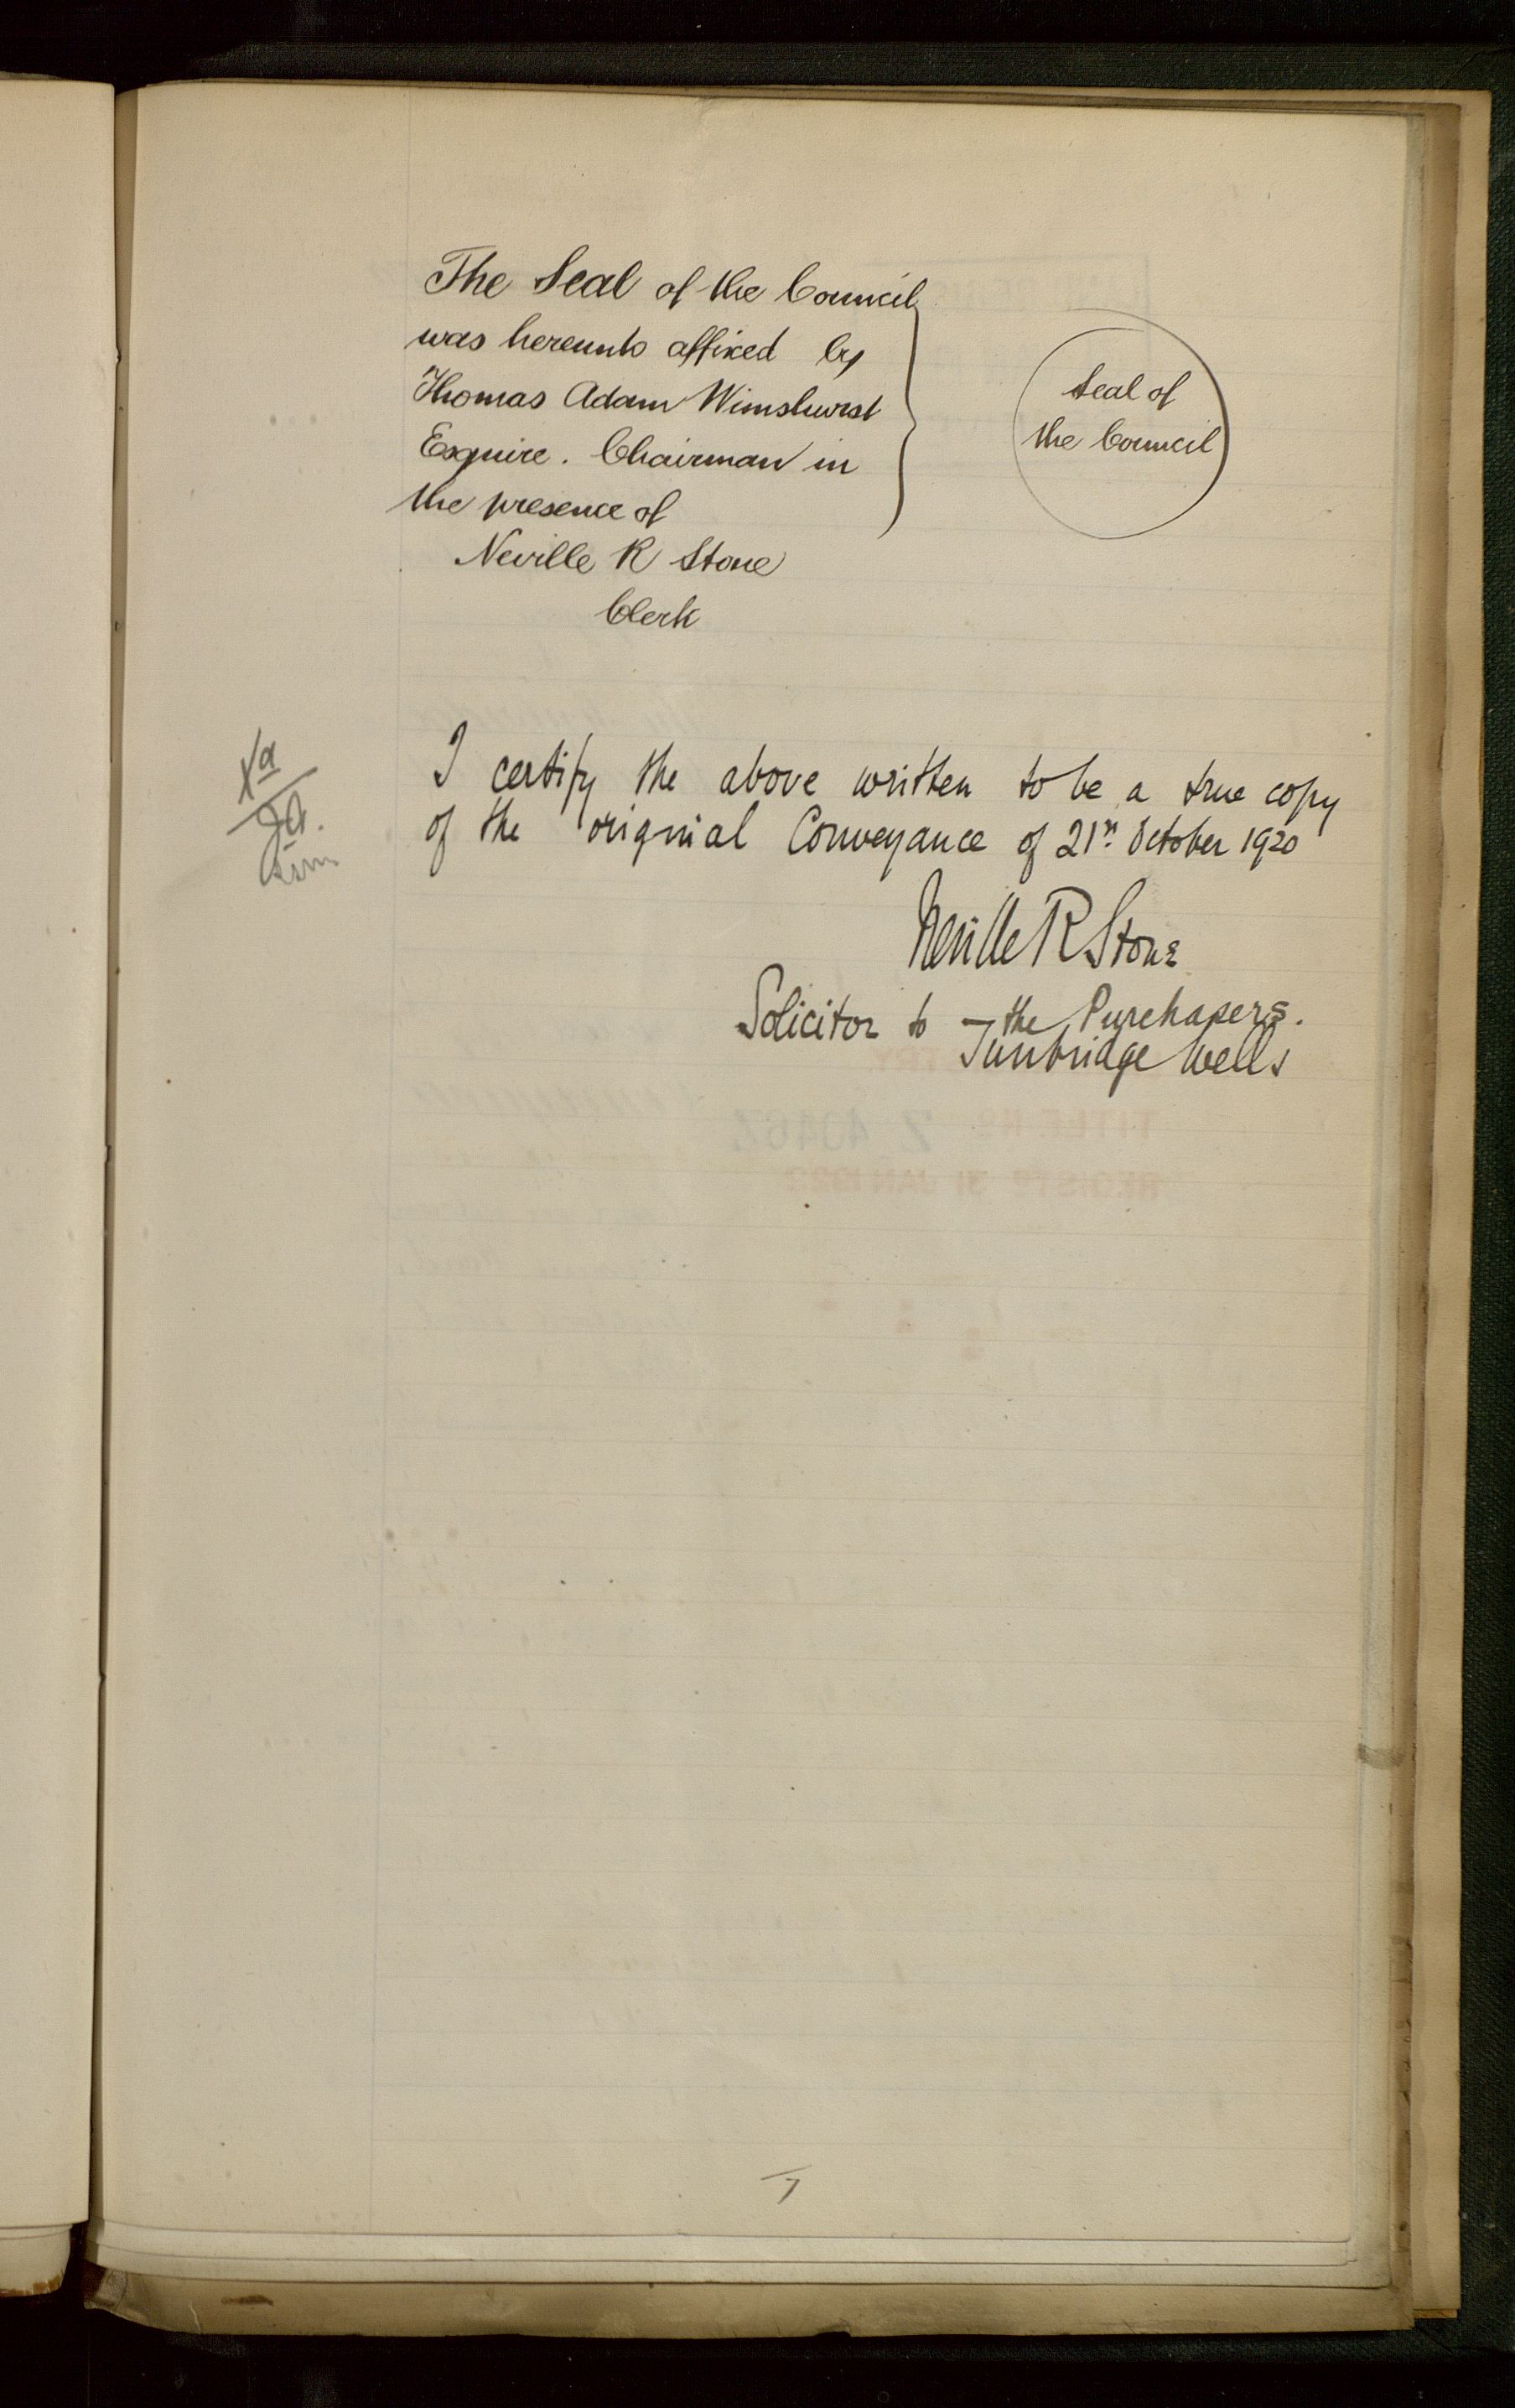 The Seal of the Council
was hereunto affixed by
Thomas Adam Wimshurst
Esquire. Chairman in
the presence of
Neville R Stone
Clerk
Seal of
the Council
I certify the above written to be a true copy
of the original Conveyance of 21st October 1920
Neville R Stone
Solicitor to the Purchasers.
Tunbridge Wells
TITLE No
REGISTD 31 JAN
7